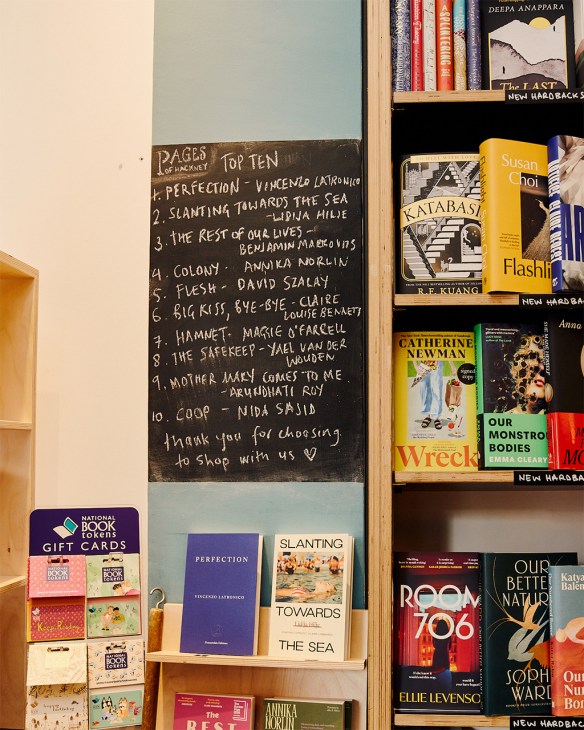 PAGES
OF HACKNEY
TOP TEN
1. PERFECTION - VINCENZO LATRONICO
2. SLANTING TOWARDS THE SEA
- LIDIJA HILJE
3. THE REST OF OUR LIVES -
BENJAMIN MARKOVITS
4. COLONY - ANNIKA NORLIN
5. FLESH - DAVID SZALAY
6. BIG KISS, BYE-BYE - CLAIRE
LOUISE BENNETT
7. HAMNET - MAGGIE O'FARRELL
8. THE SAFEKEEP - YAEL VAN DER
WOUDEN
9. MOTHER MARY COMES TO ME
- ARUNDHATI ROY
10. COOP - NIDA SAJID
thank you for choosing
to shop with us ♡
NATIONAL
BOOK
tokens
GIFT CARDS
NATIONAL
BOOK
tokens
NATIONAL
BOOK
tokens
NATIONAL
BOOK
tokens
PERFECTION
VINCENZO LATRONICO
SLANTING
TOWARDS
THE SEA
The
REST
ANNIKA
NORLIN
A SPLINTERING
DEEPA ANAPPARA
The LAST
NEW HARDBACKS
KATABASIS
R.F. KUANG
Susan
Choi
Flashli
NEW HARDBACK
CATHERINE
NEWMAN
signed
copy
Wreck
OUR
MONSTRO
BODIES
EMMA CLEARY
NEW HARDBAC
ROOM
706
ELLIE LEVENSO
OUR
BETTE
NATUR
SOPH
WARD
Katya
Balen
Our
Nu
Bo
NEW HARDBA